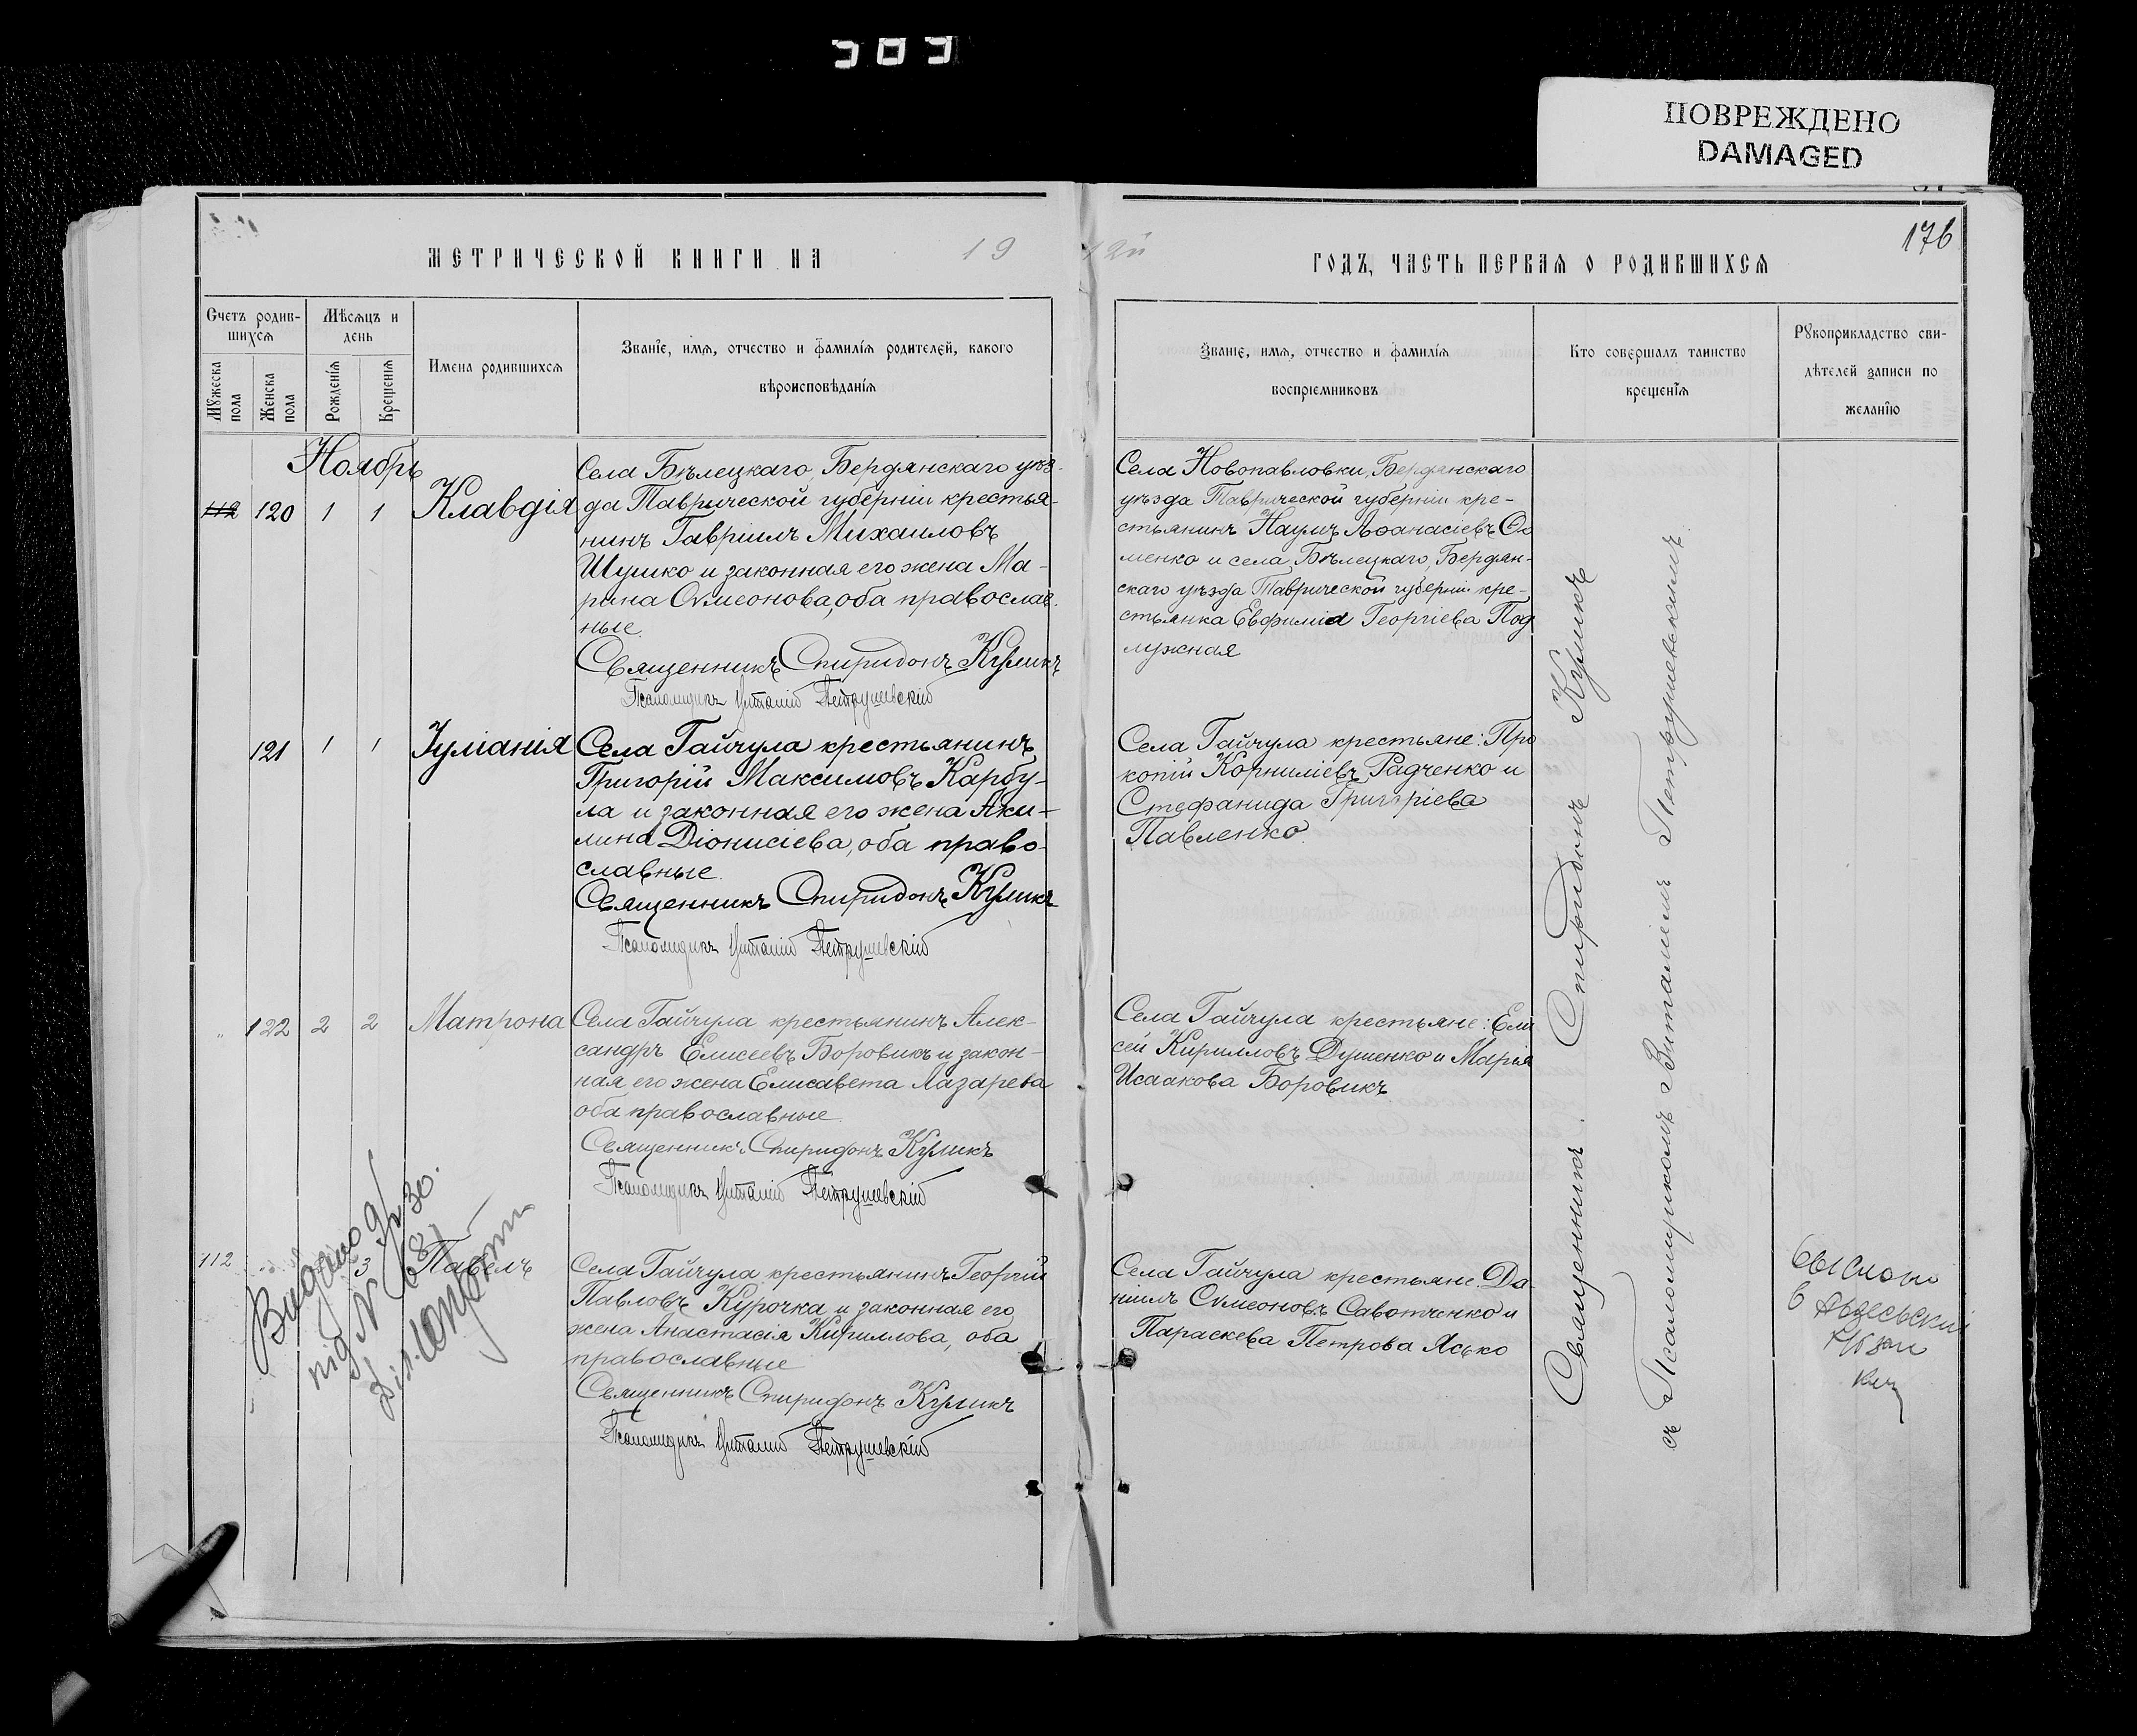 ПОВРЕЖДЕНО
DAMAGED
176
МЕТРИЧЕСКОЙ КНИГИ НА 19
12й ГОДЪ, ЧАСТЬ ПЕРВАЯ О РОДИВШИХСЯ
Счетъ родив-
шихся
Мѣсяцъ и
день
Мужеска
пола
Женска
пола
Рожденія
Крещенія
Имена родившихся
Званіе, имя, отчество и фамилія родителей, какого
вѣроисповѣданія
Званіе, имя, отчество и фамилія
воспріемниковъ
Кто совершалъ таинство
крещенія
Рукоприкладство сви-
дѣтелей записи по
желанію
Ноябрь
112 120 1 1 Клавдія
Села Бѣлецкаго, Бердянскаго уѣз-
да Таврической губерніи крестья-
нинъ Гавріилъ Михаиловъ
Шушко и законная его жена Ма-
рина Сѵмеонова, оба православ-
ные.
Священникъ Спиридонъ Куликъ
Псаломщикъ Виталій Петрушевскій
Села Новопавловки, Бердянскаго
уѣзда Таврической губерніи кре-
стьянинъ Наумъ Аѳанасіевъ
менко и села Бѣлецкаго, Бердян-
скаго уѣзда Таврической губерніи кре-
стьянка Евфимія Георгіева Под
лужная
121 1 1 Іуліанія
Села Гайчула крестьянинъ
Григорій Максимовъ Карбу-
ла и законная его жена Аки-
лина Діонисіева, оба право-
славные.
Священникъ Спиридонъ Куликъ
Псаломщикъ Виталій Петрушевскій
Села Гайчула крестьяне: Про
копій Корниліевъ Радченко и
Стефанида Григоріева
Павленко.
122 2 2 Матрона
Села Гайчула крестьянинъ Алек-
сандръ Елисеевъ Боровикъ и закон-
ная его жена Елисавета Лазарева
оба православные.
Священникъ Спиридонъ Куликъ
Псаломщикъ Виталій Петрушевскій
Села Гайчула крестьяне: Ели
сей Кирилловъ Душенко и Марія
Исаакова Боровикъ
112 3 Павелъ
Села Гайчула крестьянинъ Георгій
Павловъ Курочка и законная его
жена Анастасія Кириллова, оба
православные
Священникъ Спиридонъ Куликъ
Псаломщикъ Виталій Петрушевскій
Села Гайчула крестьяне Да-
ніилъ Сѵмеоновъ Саватченко и
Параскева Петрова Ясько
Видано
під N 68
Священникъ Спиридонъ Куликъ
съ Псаломщикомъ Виталіемъ Петрушевскимъ